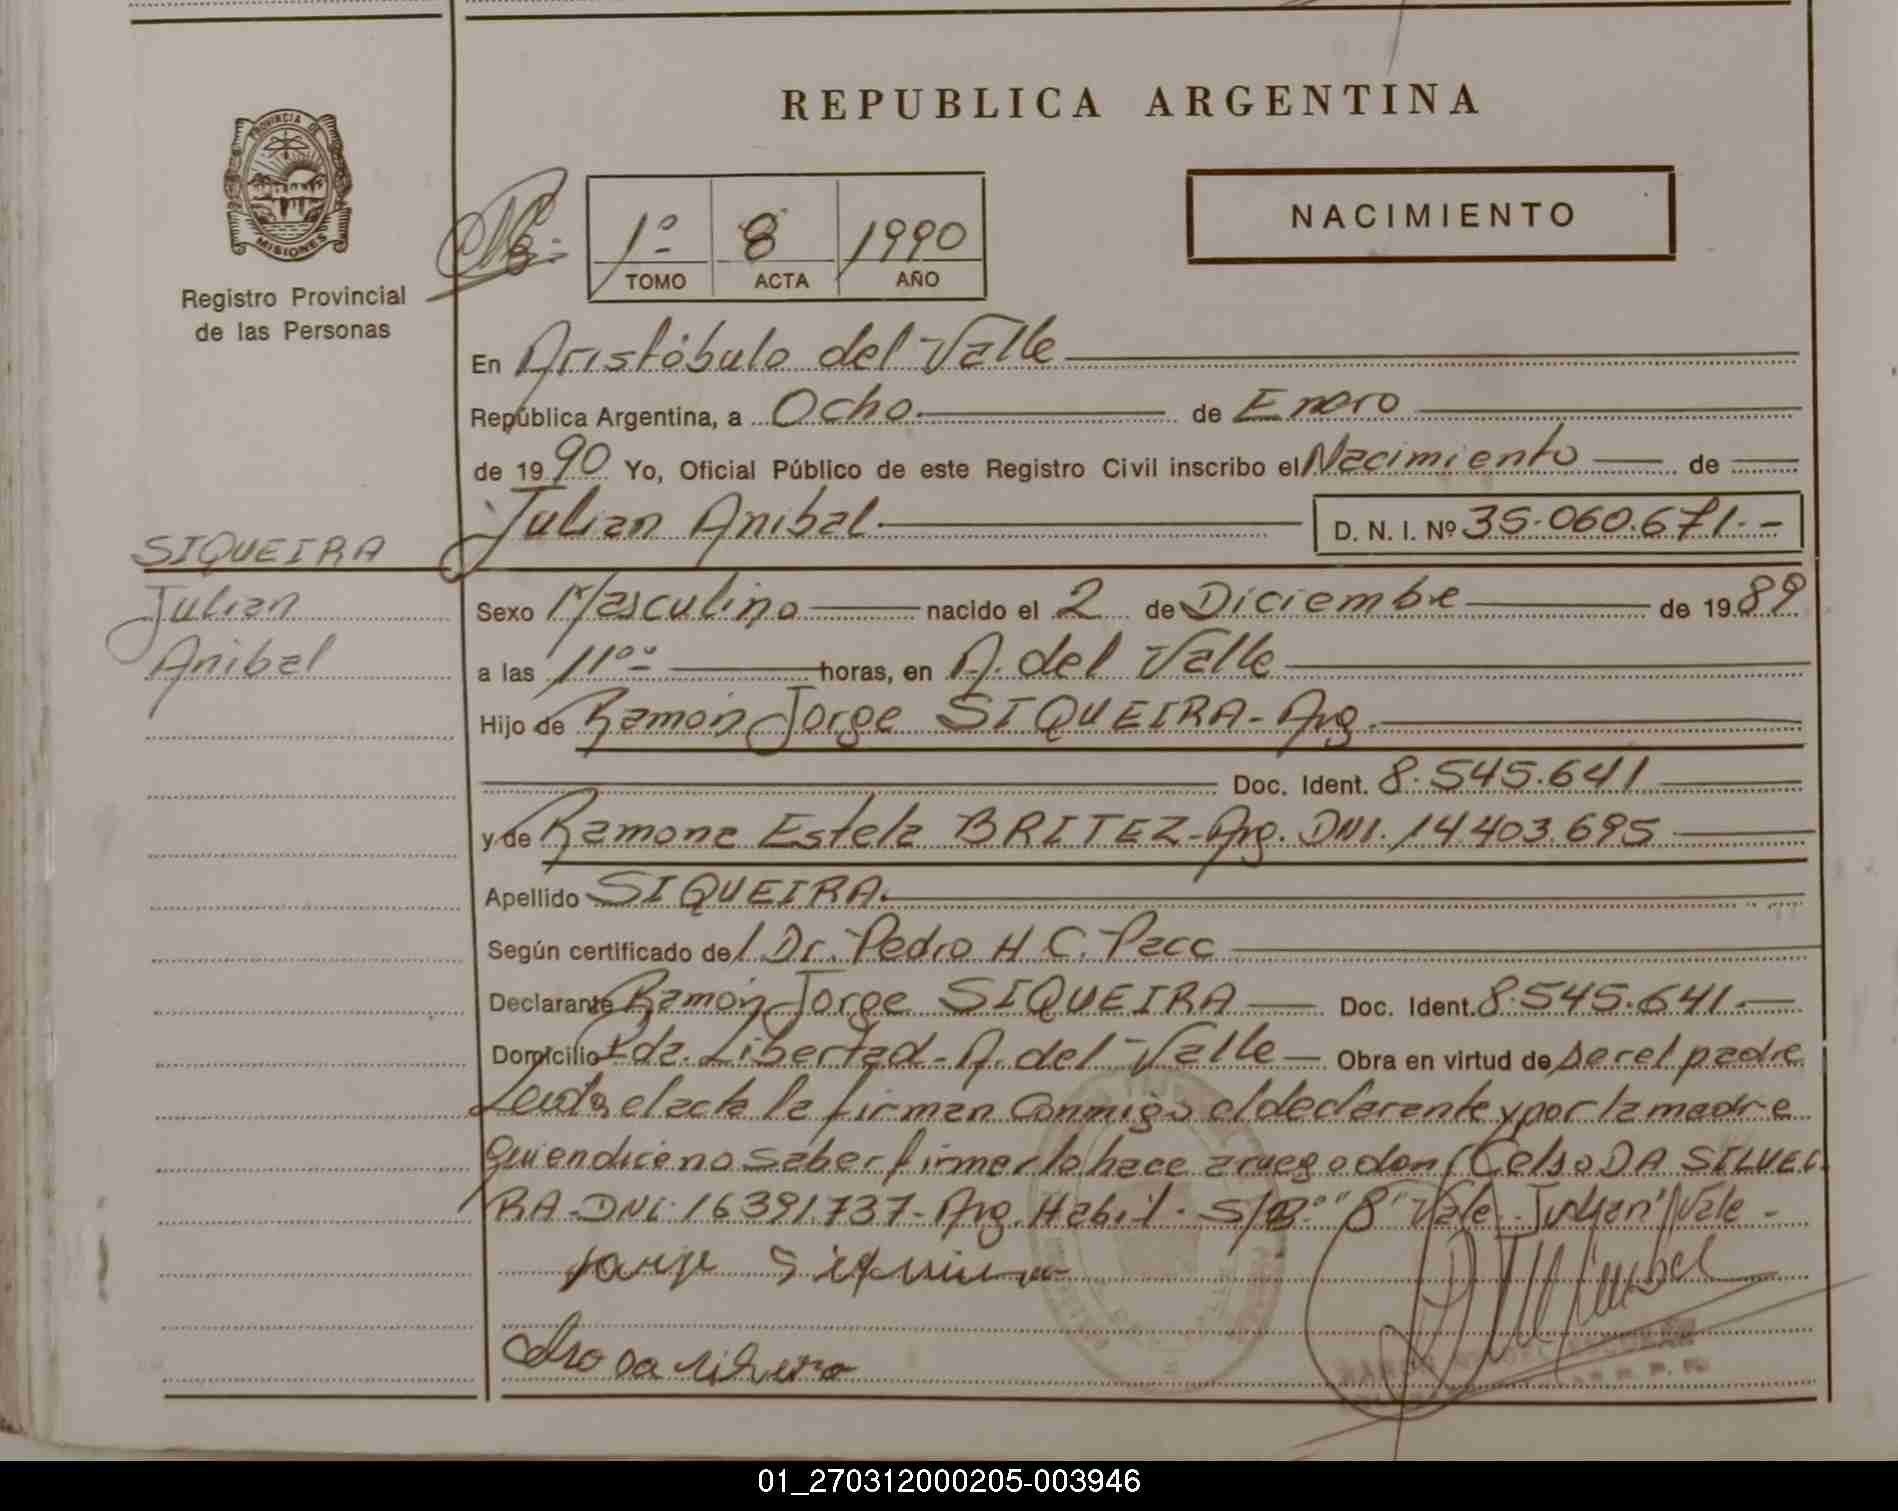 REPUBLICA ARGENTINA
PROVINCIA DE
MISIONES
Registro Provincial
de las Personas
1º 8 1990
TOMO ACTA AÑO
NACIMIENTO
En Aristóbulo del Valle
República Argentina, a Ocho de Enero
de 1990 Yo, Oficial Público de este Registro Civil inscribo el Nacimiento de
Julian Anibal D. N. I. Nº 35.060.671.-
SIQUEIRA
Julian
Anibal
Sexo Masculino nacido el 2 de Diciembre de 1989
a las 11 horas, en A. del Valle
Hijo de Ramón Jorge SIQUEIRA - Arg.
Doc. Ident. 8.545.641
y de Ramona Estela BRITEZ - Arg. DNI. 14.403.695
Apellido SIQUEIRA.
Según certificado del Dr. Pedro H C.
Declarante Ramón Jorge SIQUEIRA Doc. Ident. 8.545.641.
Domicilio Pda. Libertad - A. del Valle Obra en virtud de ser el padre
Leida el acta la firman conmigo el declarante y por la madre
quien dice no saber firmar lo hace a ruego don Celso DA SILVEI
RA - DNI. 16391.737 - Arg. Habil. S/R "8" Vale - "Julian" Vale -
01_270312000205-003946